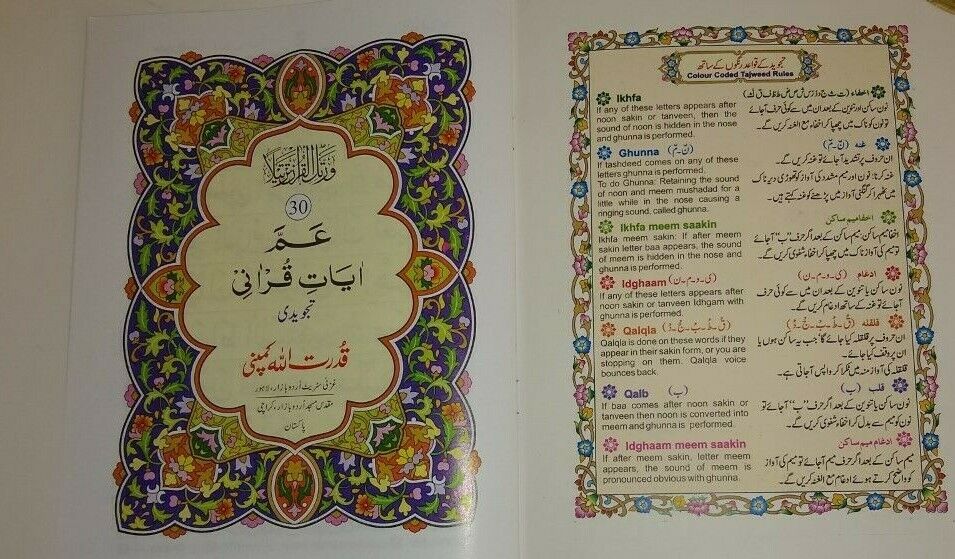 ورتل القرآن ترتيلا
30
عَمَّ
اٰیاتِ قُرْاٰنِیْ
تجویدی
قدرت اللہ کمپنی
غزنی سٹریٹ اُردو بازار، لاہور
مقدس مسجد اُردو بازار، کراچی
پاکستان
تجوید کے قواعد رنگوں کے ساتھ
Colour Coded Tajweed Rules
Ikhfa
If any of these letters appears after
noon sakin or tanveen, then the
sound of noon is hidden in the nose
and ghunna is performed.
اخفاء (ت ث ج د ذ ز س ش ص ض ط ظ ف ق ک)
نون ساکن اور تنوین کے بعد ان میں سے کوئی حرف آجائے
تو نون کو ناک میں چھپا کر اخفاء مع الغنہ کریں گے۔
Ghunna (نّ - مّ)
If tashdeed comes on any of these
letters ghunna is performed.
To do Ghunna: Retaining the sound
of noon and meem mushadad for a
little while in the nose causing a
ringing sound, called ghunna.
غنہ (نّ - مّ)
ان حروف پر تشدید آجائے تو غنہ کریں گے۔
غنہ کرنا: نون اور میم مشدد کی آواز کو تھوڑی دیر ناک
میں ٹھہرا کر گنگنی آواز میں پڑھنے کو غنہ کہتے ہیں۔
Ikhfa meem saakin
Ikhfa meem sakin: If after meem
sakin letter baa appears, the sound
of meem is hidden in the nose and
ghunna is performed.
اخفا میم ساکن
اخفا میم ساکن: میم ساکن کے بعد اگر حرف "ب" آجائے
تو میم کی آواز ناک میں چھپا کر اخفاء شفوی کریں گے۔
Idghaam (ی - و - م - ن)
If any of these letters appears after
noon sakin or tanveen Idgham with
ghunna is performed.
ادغام (ی - و - م - ن)
نون ساکن یا تنوین کے بعد ان میں سے کوئی حرف
آجائے تو غنہ کے ساتھ ادغام کریں گے۔
Qalqla (قْ - طْ - بْ - جْ - دْ)
Qalqala is done on these words if they
appear in their sakin form, or you are
stopping on them. Qalqla voice
bounces back.
قلقلہ (قْ - طْ - بْ - جْ - دْ)
ان حروف پر قلقلہ کیا جائے گا: جب یہ ساکن ہوں یا
ان پر وقف کیا جائے۔
قلقلہ کی آواز منہ میں ٹکرا کر واپس آجاتی ہے۔
Qalb (ب)
If baa comes after noon sakin or
tanveen then noon is converted into
meem and ghunna is performed.
قلب (ب)
نون ساکن یا تنوین کے بعد اگر حرف "ب" آجائے تو
نون کو میم سے بدل کر اخفاء شفوی کریں گے۔
Idghaam meem saakin
If after meem sakin, letter meem
appears, the sound of meem is
pronounced obvious with ghunna.
ادغام میم ساکن
میم ساکن کے بعد اگر حرف میم آجائے تو میم کی آواز
کو واضح کرتے ہوئے ادغام مع الغنہ کریں گے۔